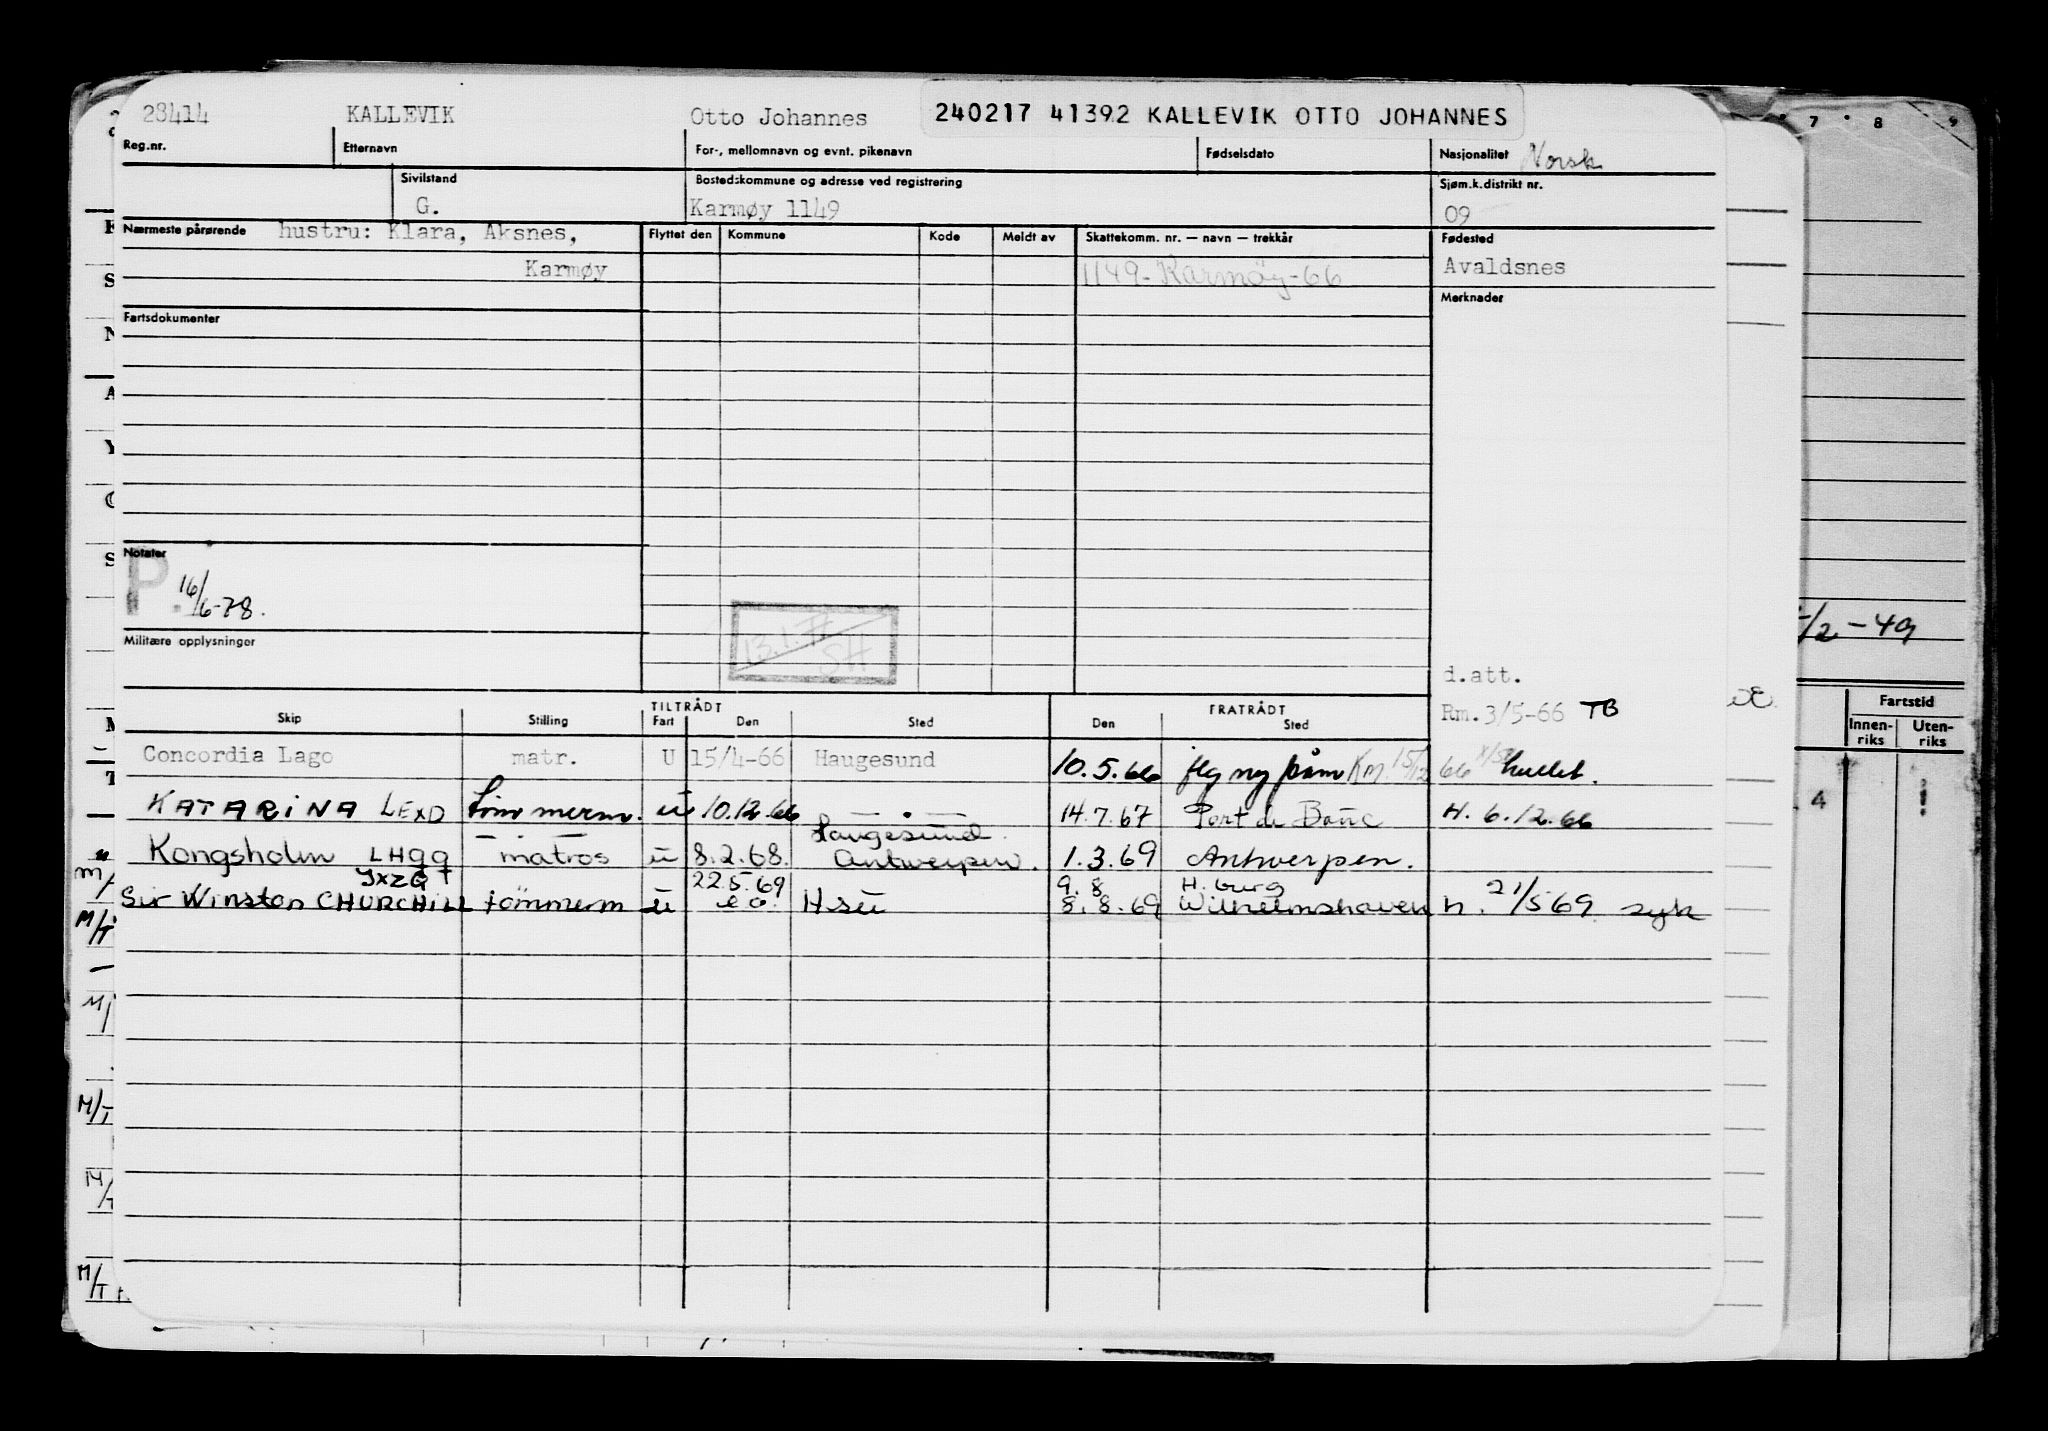 28414 KALLEVIK Otto Johannes 240217 41392 KALLEVIK OTTO JOHANNES
Reg.nr. Etternavn For-, mellomnavn og evnt. pikenavn Fødselsdato Nasjonalitet Norsk
Sivilstand Bostedskommune og adresse ved registrering Sjøm.k.distrikt nr.
G. Karmøy 1149 09
Nærmeste pårørende hustru: Klara, Aksnes, Flyttet den Kommune Kode Meldt av Skattekomm. nr. — navn — trekkår Fødested
Karmøy 1149-Karmöy-66 Avaldsnes
Merknader
Fartsdokumenter
Notater
P. 16/6-78.
13.1.71 SH
Militære opplysninger
d.att.
Rm. 3/5-66 TB
TILTRÅDT FRATRÅDT
Skip Stilling Fart Den Sted Den Sted
Concordia Lago matr. U 15/4-66 Haugesund 10.5.66 Km. 15/12 66
KATARINA LEXD tömmerm. u 10.12.66 Haugesund 14.7.67 Port de Bouc H. 6.12.66
Kongsholm LHQQ matros u 8.2.68. Antwerpen. 1.3.69 Antwerpen.
JXZQ 22.5.69 9.8 H.burg
Sir Winston CHURCHILL tömmerm u H.su 8.8.69 Wilhelmshaven h. 21/5 69 syk
7 8 9
/2-49
Fartstid
Innen-riks Uten-riks
4
M/T
M/T
M/T
M/T